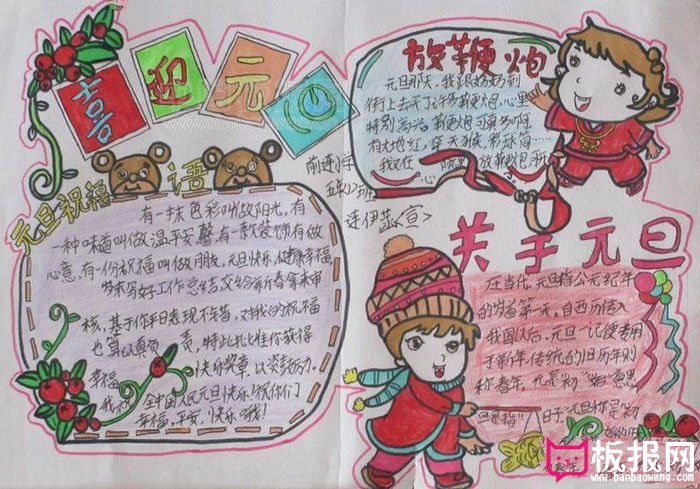 喜迎元旦
元旦祝福语
有一抹色彩叫做阳光,有
一种味道叫做温馨
心意,有一份祝福叫做朋友,元旦快乐,健康幸福
写好工作总结交给新春来审
核,基于你平日表现不错,对我的祝福
也算认真负责,特此批准你获得
幸福
快乐奖章,以资鼓励。
我祝全中国人民元旦快乐!祝你们
幸福,平安,快乐哦!
前进小学
五年
连伊
放鞭炮
元旦那天,我跟妈妈到
街上去买了许多鞭炮,心里
特别高兴。鞭炮可真多啊,
有大地红,穿天猴,彩球筒……
我又在
放鞭炮
关于元旦
在当代,元旦指公元纪年
的岁首第一天。自西历传入
我国以后,元旦一词便专
于新年,传统的旧历年则
称春年。元是“初”“始”意思
旦是指“日子”元旦
板报网
www.banbaowang.com